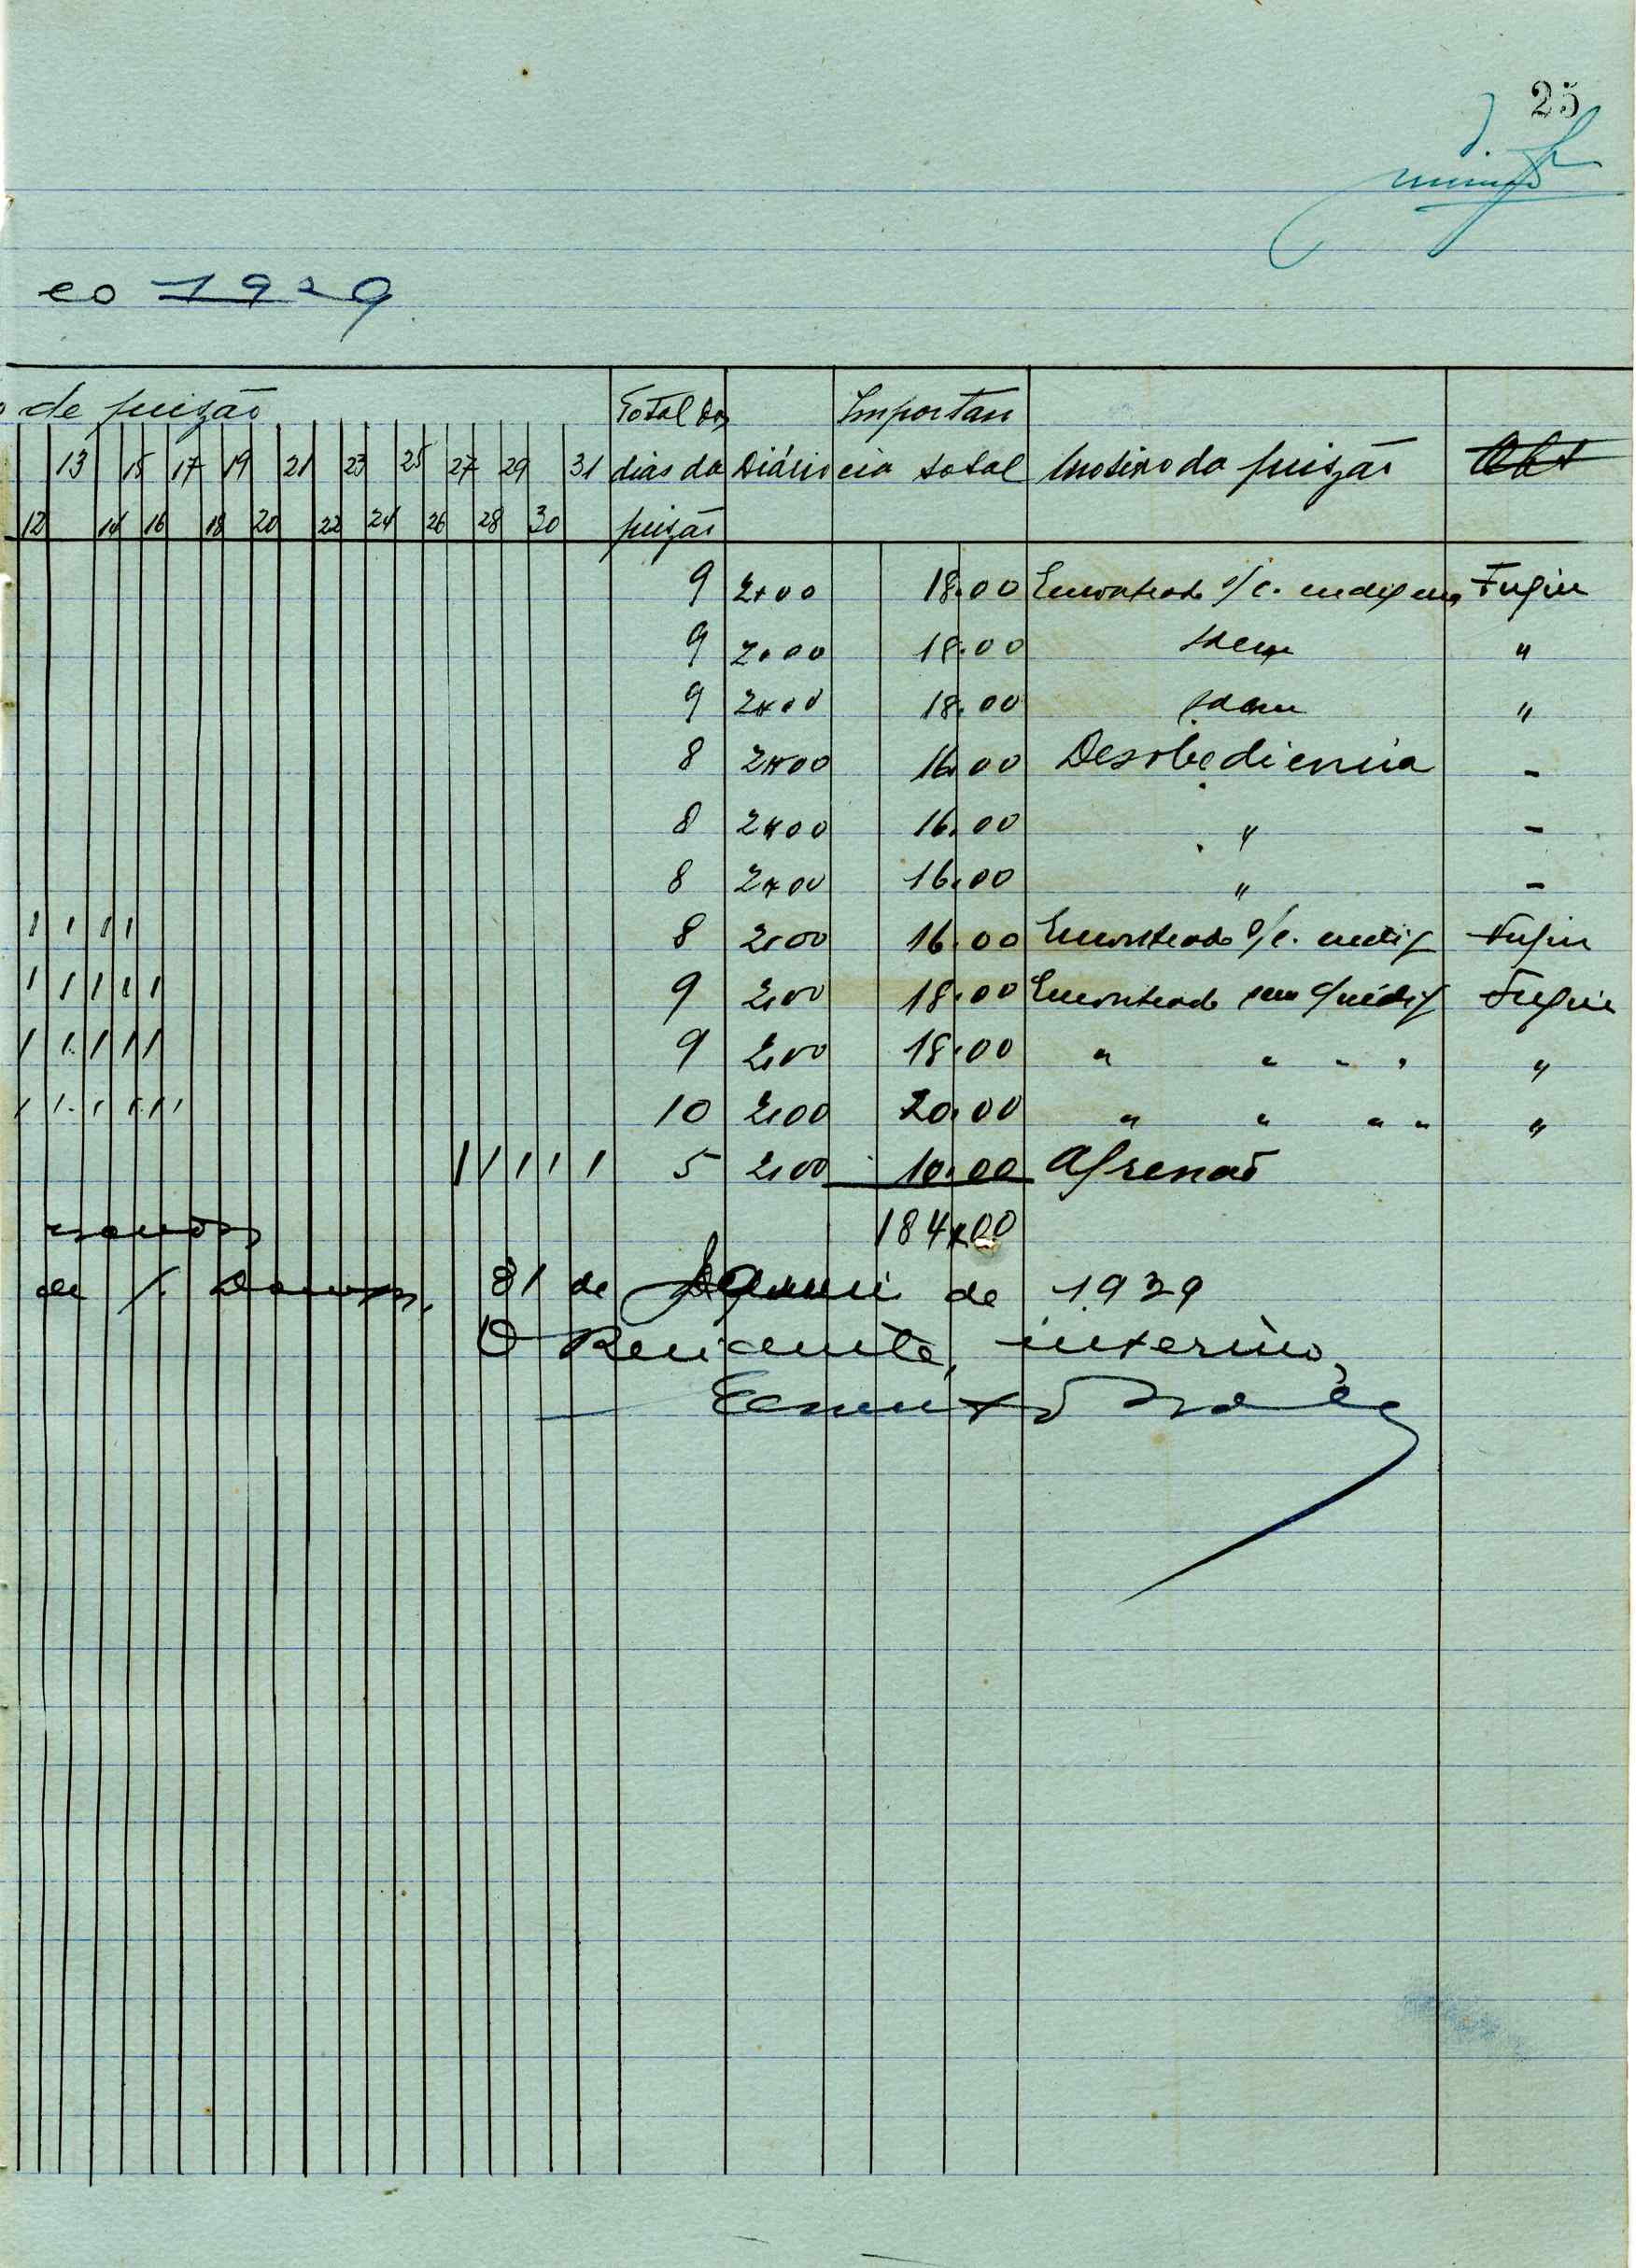 25
eo 1929
de prizão
13 15 17 19 21 23 25 27 29 31
12 14 16 18 20 22 24 26 28 30
Total dos dias da prizão
Diário
Importancia total
Motivo da prizão
9 2,00 18.00 Encontrado s/ c. indigena Fugiu
9 2.00 18.00 Idem "
9 2x00 18.00 Idem "
8 2x00 16.00 Desobediencia -
8 2x00 16.00 " -
8 2x00 16.00 " -
1 1 1 1 8 2,00 16.00 Encontrado s/ c. indig Fugiu
1 1 1 1 1 9 2,00 18.00 Encontrado sem indig Fugiu
1 1 1 1 1 9 2,00 18.00 " " " " "
1 1 1 1 1 1 10 2,00 20.00 " " " " "
1 1 1 1 1 5 2,00 10.00
184x00
31 de de 1929
O interino,